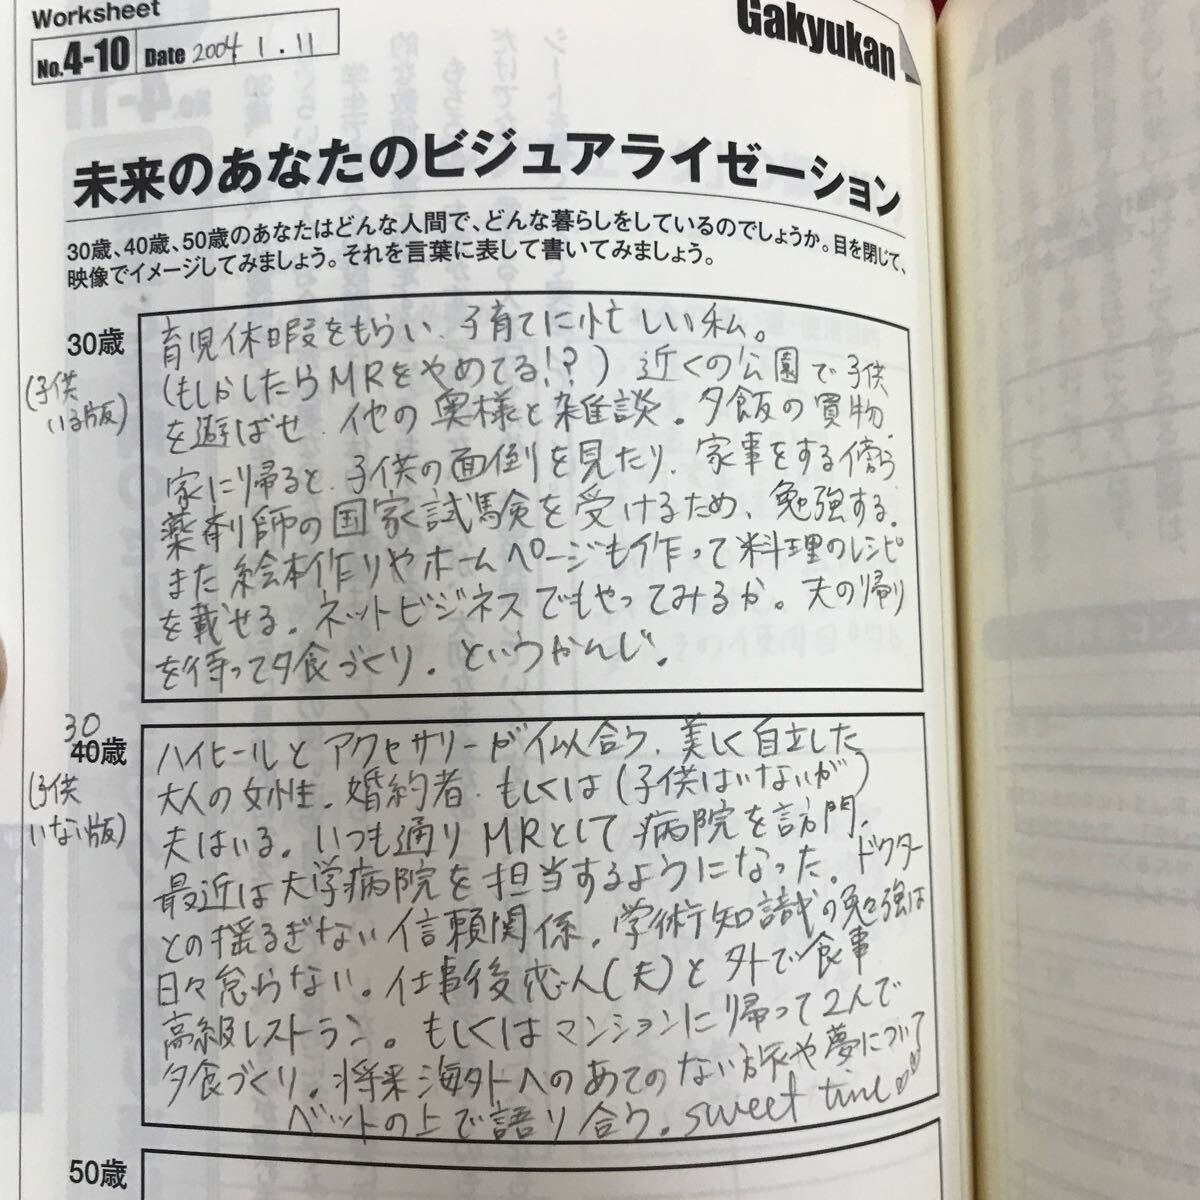 Worksheet
No.4-10 Date 2004 1.11
Gakyukan
未来のあなたのビジュアライゼーション
30歳、40歳、50歳のあなたはどんな人間で、どんな暮らしをしているのでしょうか。目を閉じて、
映像でイメージしてみましょう。それを言葉に表して書いてみましょう。
30歳
(子供
いる版)
育児休暇をもらい、子育てに忙しい私。
(もしかしたらMRをやめてる!?) 近くの公園で子供
を遊ばせ、他の奥様と雑談。夕飯の買物。
家に帰ると、子供の面倒を見たり、家事をする傍ら
薬剤師の国家試験を受けるため、勉強する。
また絵本作りやホームページも作って料理のレシピ
を載せる。ネットビジネスでもやってみるか。夫の帰り
を待って夕食づくり。というかんじ。
30
40歳
(子供
いない版)
ハイヒールとアクセサリーが似合う、美しく自立した
大人の女性。婚約者、もしくは(子供はいないが)
夫はいる。いつも通りMRとして病院を訪問。
最近は大学病院を担当するようになった。ドクター
との揺るぎない信頼関係。学術知識の勉強は
日々怠らない。仕事後恋人(夫)と外で食事
高級レストラン。もしくはマンションに帰って2人で
夕食づくり。将来海外へのあてのない旅や夢について
ベットの上で語り合う。sweet time♡♡
50歳